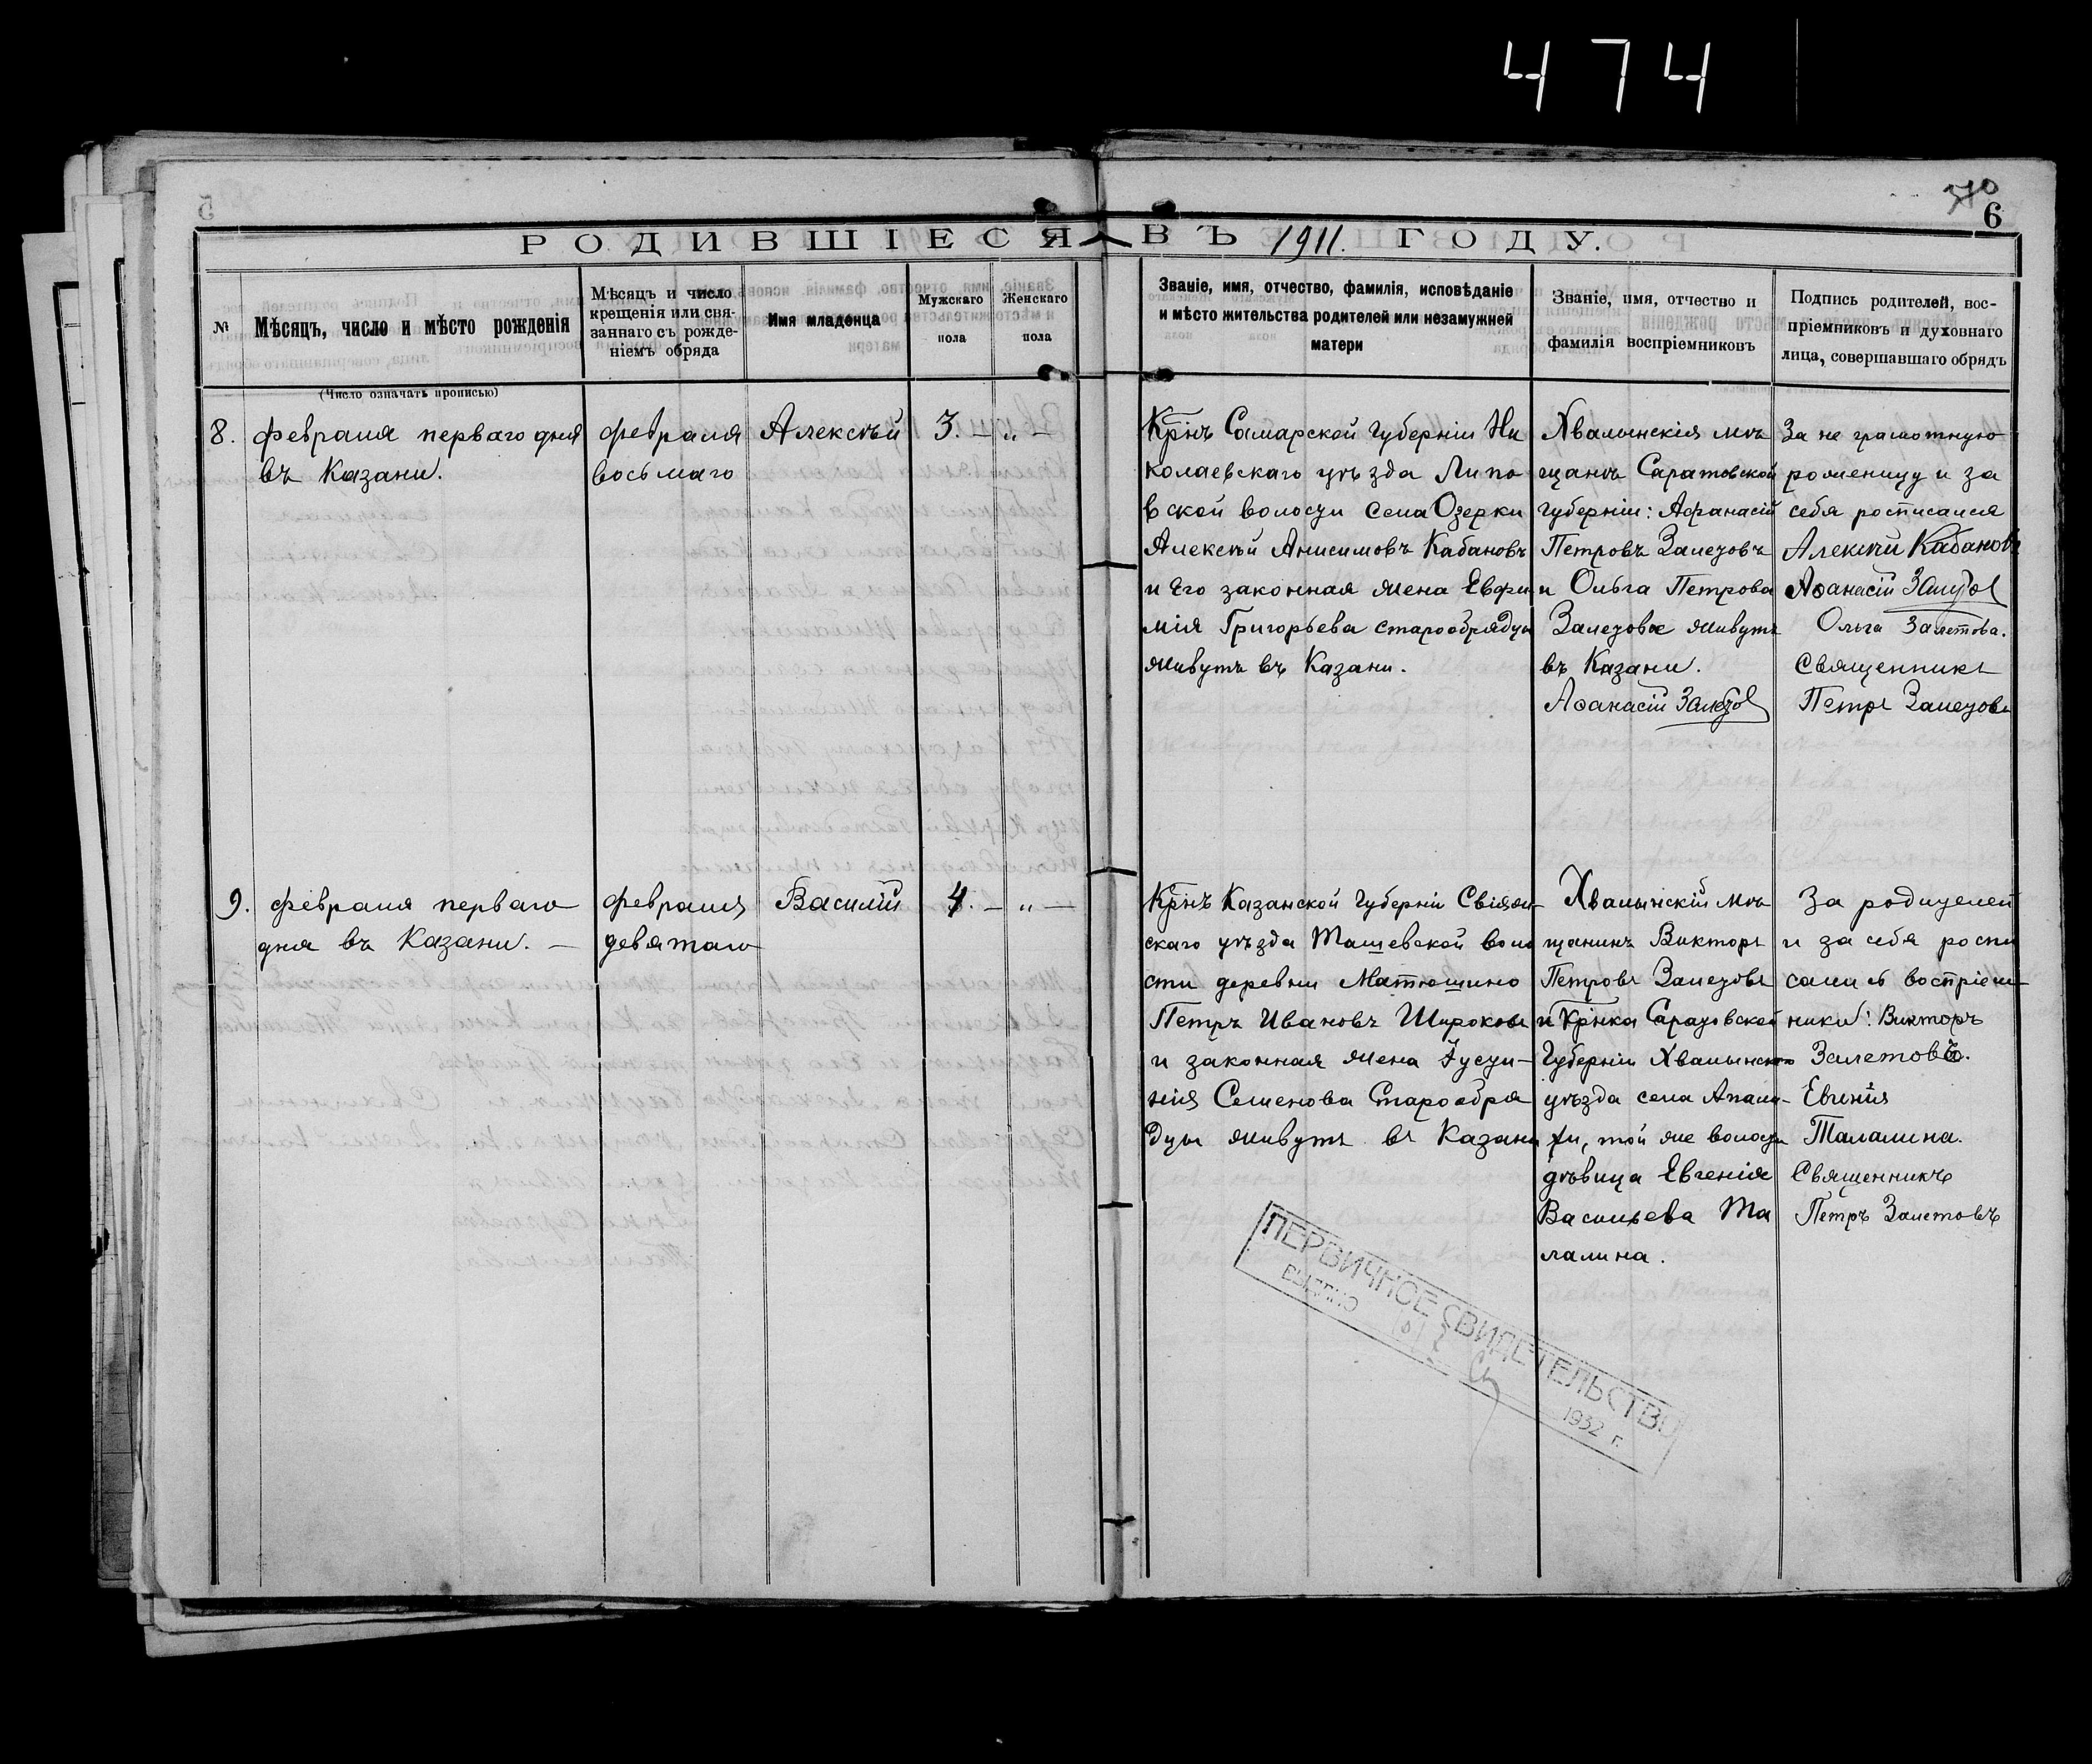 474
70
6
РОДИВШІЕСЯ ВЪ 1911. ГОДУ.
№
Мѣсяцъ, число и мѣсто рожденія
Мѣсяцъ и число
крещенія или свя-
заннаго съ рожде-
ніемъ обряда
Имя младенца
Мужскаго
пола
Женскаго
пола
Званіе, имя, отчество, фамилія, исповѣданіе
и мѣсто жительства родителей или незамужней
матери
Званіе, имя, отчество и
фамилія воспріемниковъ
Подпись родителей, вос-
пріемниковъ и духовнаго
лица, совершавшаго обрядъ
(Число означать прописью)
8.
февраля перваго дня
въ Казани.
февраля
восьмаго
Алексѣй
3. — „ —
Крнъ Самарской Губерніи Ни
колаевскаго уѣзда Липо
вской волости села Озерки
Алексѣй Анисимовъ Кабановъ
и Его законная жена Евфи
мія Григорьева старообрядцы
живутъ въ Казани.
Хвалынскія мѣ
щанѣ Саратовской
губерніи: Афанасій
Петровъ Залетовъ
и Ольга Петрова
Залетовы живутъ
въ Казани.
Аѳанасій Залетов
За не грамотную
роженицу и за
себя росписался
Алексѣй Кабановъ
Аѳанасій Залетов
Ольга Залетова.
Священникъ
Петръ Залетовъ
9.
февраля перваго
дня въ Казани. —
февраля
девятаго
Василій
4. — „ —
Крнъ Казанской Губерніи Свіяж-
скаго уѣзда Ташевской воло
сти деревни Матюшино
Петръ Ивановъ Широковъ
и законная жена Іусти-
нія Семенова Старообря
дцы живутъ въ Казани
Хвалынскій мѣ
щанинъ Викторъ
Петровъ Залетовъ
и Крнка Саратовской
Губерніи Хвалынскаго
уѣзда села Апали-
хи, той же волости
дѣвица Евгенія
Васильева Та
лалина.
За родителей
и за себя роспи
сались воспріем-
ники: Викторъ
Залетовъ.
Евгенія
Талалина.
Священникъ
Петръ Залетовъ
ПЕРВИЧНОЕ СВИДЕТЕЛЬСТВО
ВЫДАНО
1932 г.